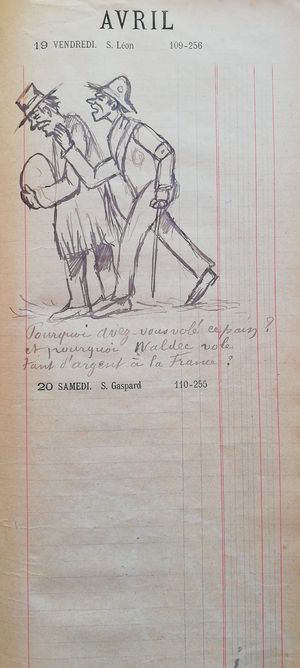 AVRIL
19 VENDREDI. S. Léon 109-256
Pourquoi avez-vous volé ce pain ?
et pourquoi Waldec vole
tant d'argent à la France ?
20 SAMEDI. S. Gaspard 110-255